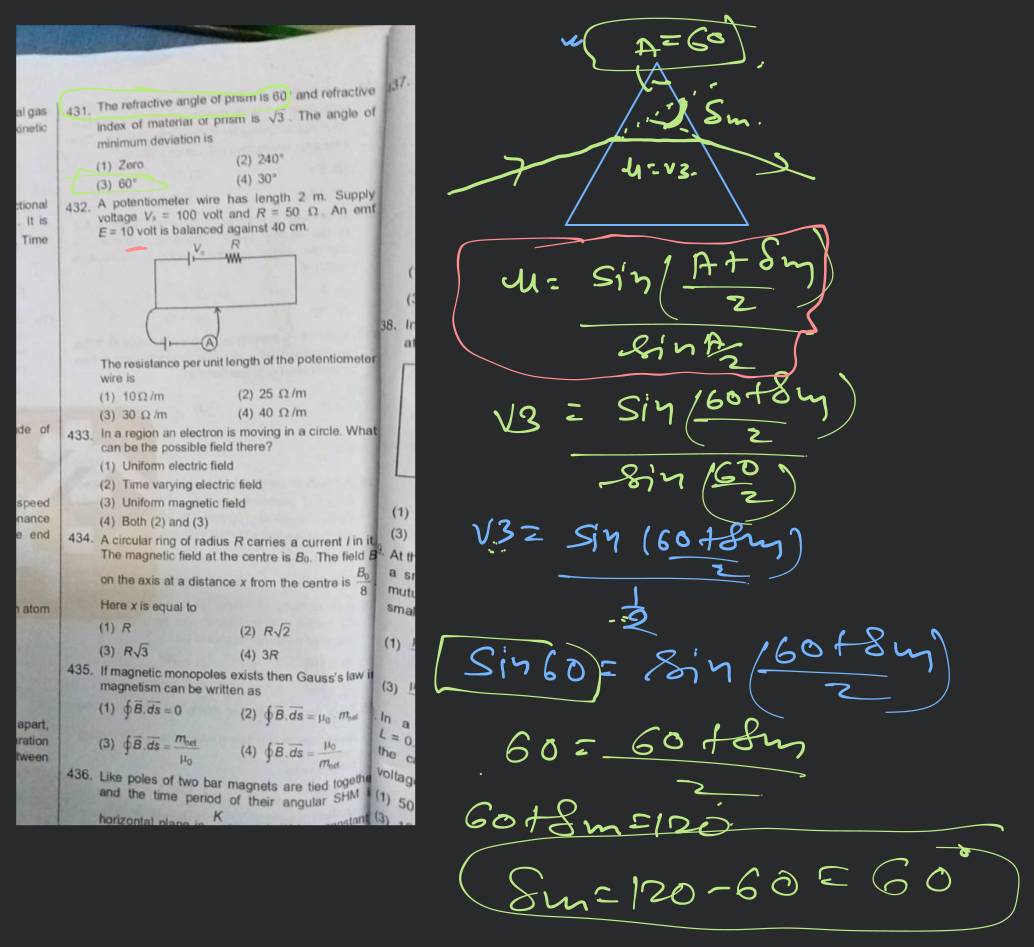 al gas
kinetic
ctional
. It is
Time
de of
speed
nance
e end
atom
apart,
ration
tween
431. The refractive angle of prism is 60° and refractive
index of material of prism is √3. The angle of
minimum deviation is
(1) Zero (2) 240°
(3) 60° (4) 30°
432. A potentiometer wire has length 2 m. Supply
voltage Vs = 100 volt and R = 50 Ω. An emf
E = 10 volt is balanced against 40 cm.
Vs R
A
The resistance per unit length of the potentiometer
wire is
(1) 10Ω/m (2) 25 Ω/m
(3) 30 Ω/m (4) 40 Ω/m
433. In a region an electron is moving in a circle. What
can be the possible field there?
(1) Uniform electric field
(2) Time varying electric field
(3) Uniform magnetic field
(4) Both (2) and (3)
434. A circular ring of radius R carries a current I in it.
The magnetic field at the centre is B₀. The field B
on the axis at a distance x from the centre is B₀/8
Here x is equal to
(1) R (2) R√2
(3) R√3 (4) 3R
435. If magnetic monopoles exists then Gauss's law i
magnetism can be written as
(1) ∮B.ds = 0 (2) ∮B.ds = μ₀ · mnet
(3) ∮B.ds = mnet/μ₀ (4) ∮B.ds = μ₀/mnet
436. Like poles of two bar magnets are tied togethe
and the time period of their angular SHM
horizontal plane is K
37.
38. In
(1)
(3)
At th
a sr
mutu
smal
(1)
(3)
In a
L = 0.
the c
voltag
(1) 50
(3)
A = 60
δm.
μ = √3.
μ = sin((A + δm)/2) / sin A/2
√3 = sin((60+δm)/2) / sin(60/2)
√3 = sin((60+δm)/2) / 1/2
Sin60 = sin((60+δm)/2)
60 = (60+δm)/2
60+δm=120
δm=120-60=60°